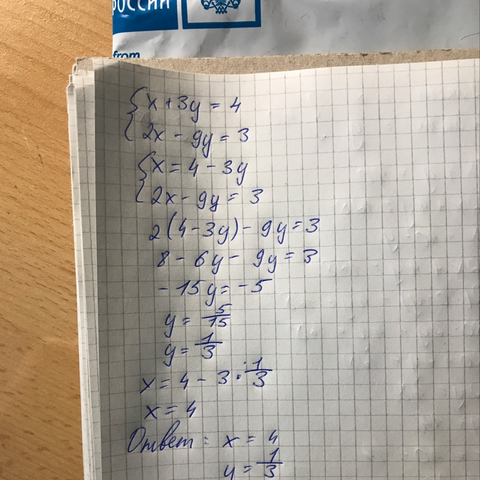 РОССИИ
from
{x + 3y = 4
{2x - 9y = 3
{x = 4 - 3y
{2x - 9y = 3
2(4 - 3y) - 9y = 3
8 - 6y - 9y = 3
- 15y = -5
y = 5/15
y = 1/3
x = 4 - 3 · 1/3
x = 4
Ответ: x = 4
y = 1/3